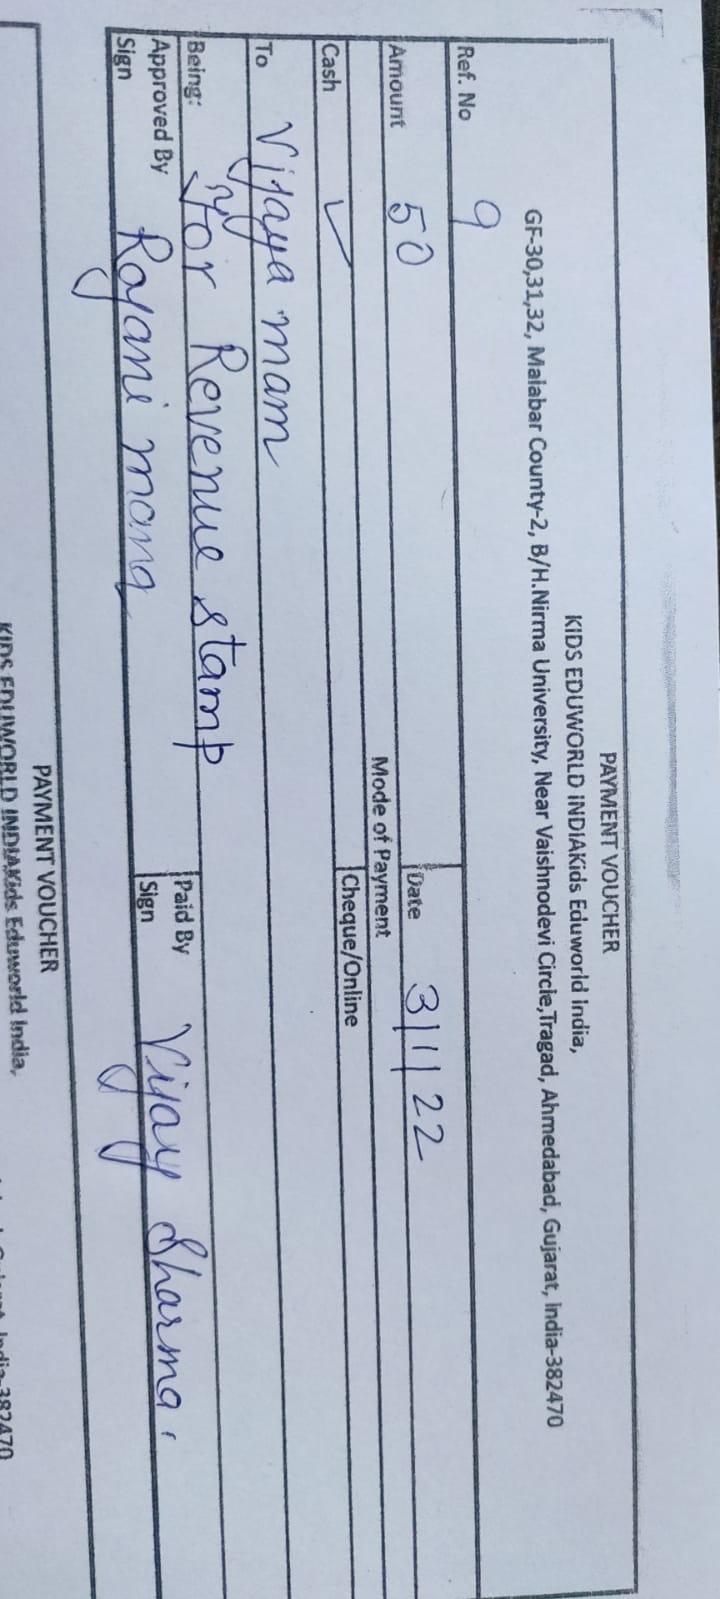 PAYMENT VOUCHER
KIDS EDUWORLD INDIAKids Eduworld India,
GF-30,31,32, Malabar County-2, B/H.Nirma University, Near Vaishnodevi Circle,Tragad, Ahmedabad, Gujarat, India-382470
Ref. No 9
Amount 50 Date 3/1/22
Mode of Payment
Cash ✓ Cheque/Online
To Vijaya mam
Being: for Revenue stamp
Approved By Paid By
Sign Rajani mam Sign Vijay Sharma.
PAYMENT VOUCHER
KIDS EDUWORLD INDIAKids Eduworld India,
India-382470